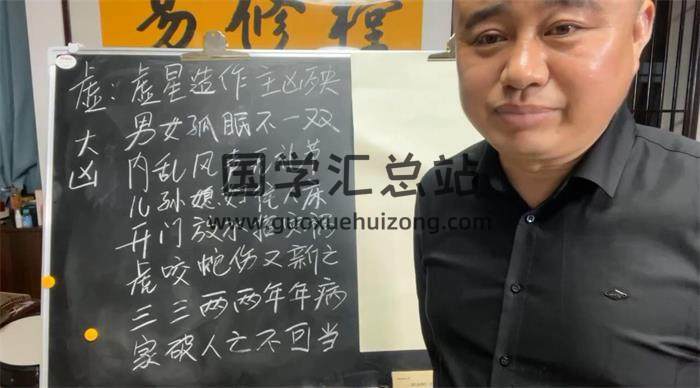 易修程
虚：虚星造作主凶殃
大凶
男女孤眠不一双
内乱风
儿孙媳
开门放水
虎咬蛇伤又
三三两两年年病
家破人亡不可当
国学汇总站
www.guoxuehuizong.com